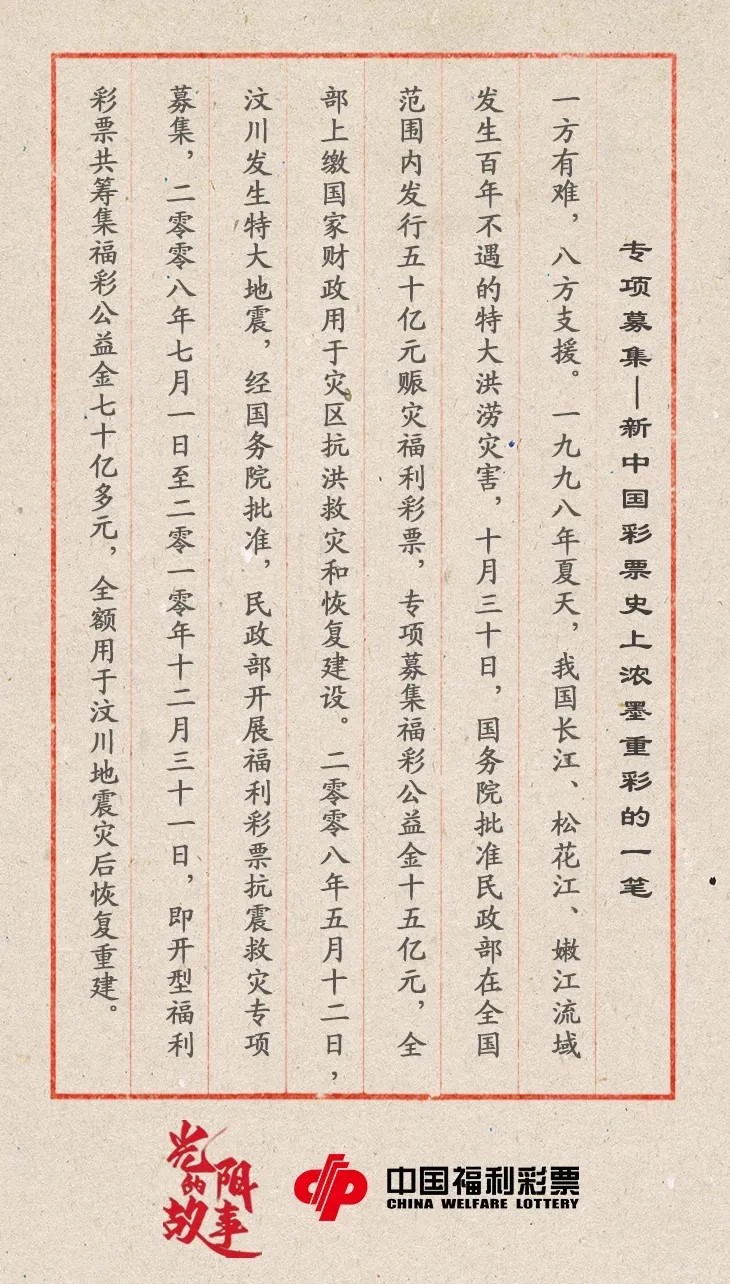 专项募集—新中国彩票史上浓墨重彩的一笔
一方有难，八方支援。一九九八年夏天，我国长江、松花江、嫩江流域
发生百年不遇的特大洪涝灾害，十月三十日，国务院批准民政部在全国
范围内发行五十亿元赈灾福利彩票，专项募集福彩公益金十五亿元，全
部上缴国家财政用于灾区抗洪救灾和恢复建设。二零零八年五月十二日，
汶川发生特大地震，经国务院批准，民政部开展福利彩票抗震救灾专项
募集，二零零八年七月一日至二零一零年十二月三十一日，即开型福利
彩票共筹集福彩公益金七十亿多元，全额用于汶川地震灾后恢复重建。
光阴的故事
中国福利彩票
CHINA WELFARE LOTTERY